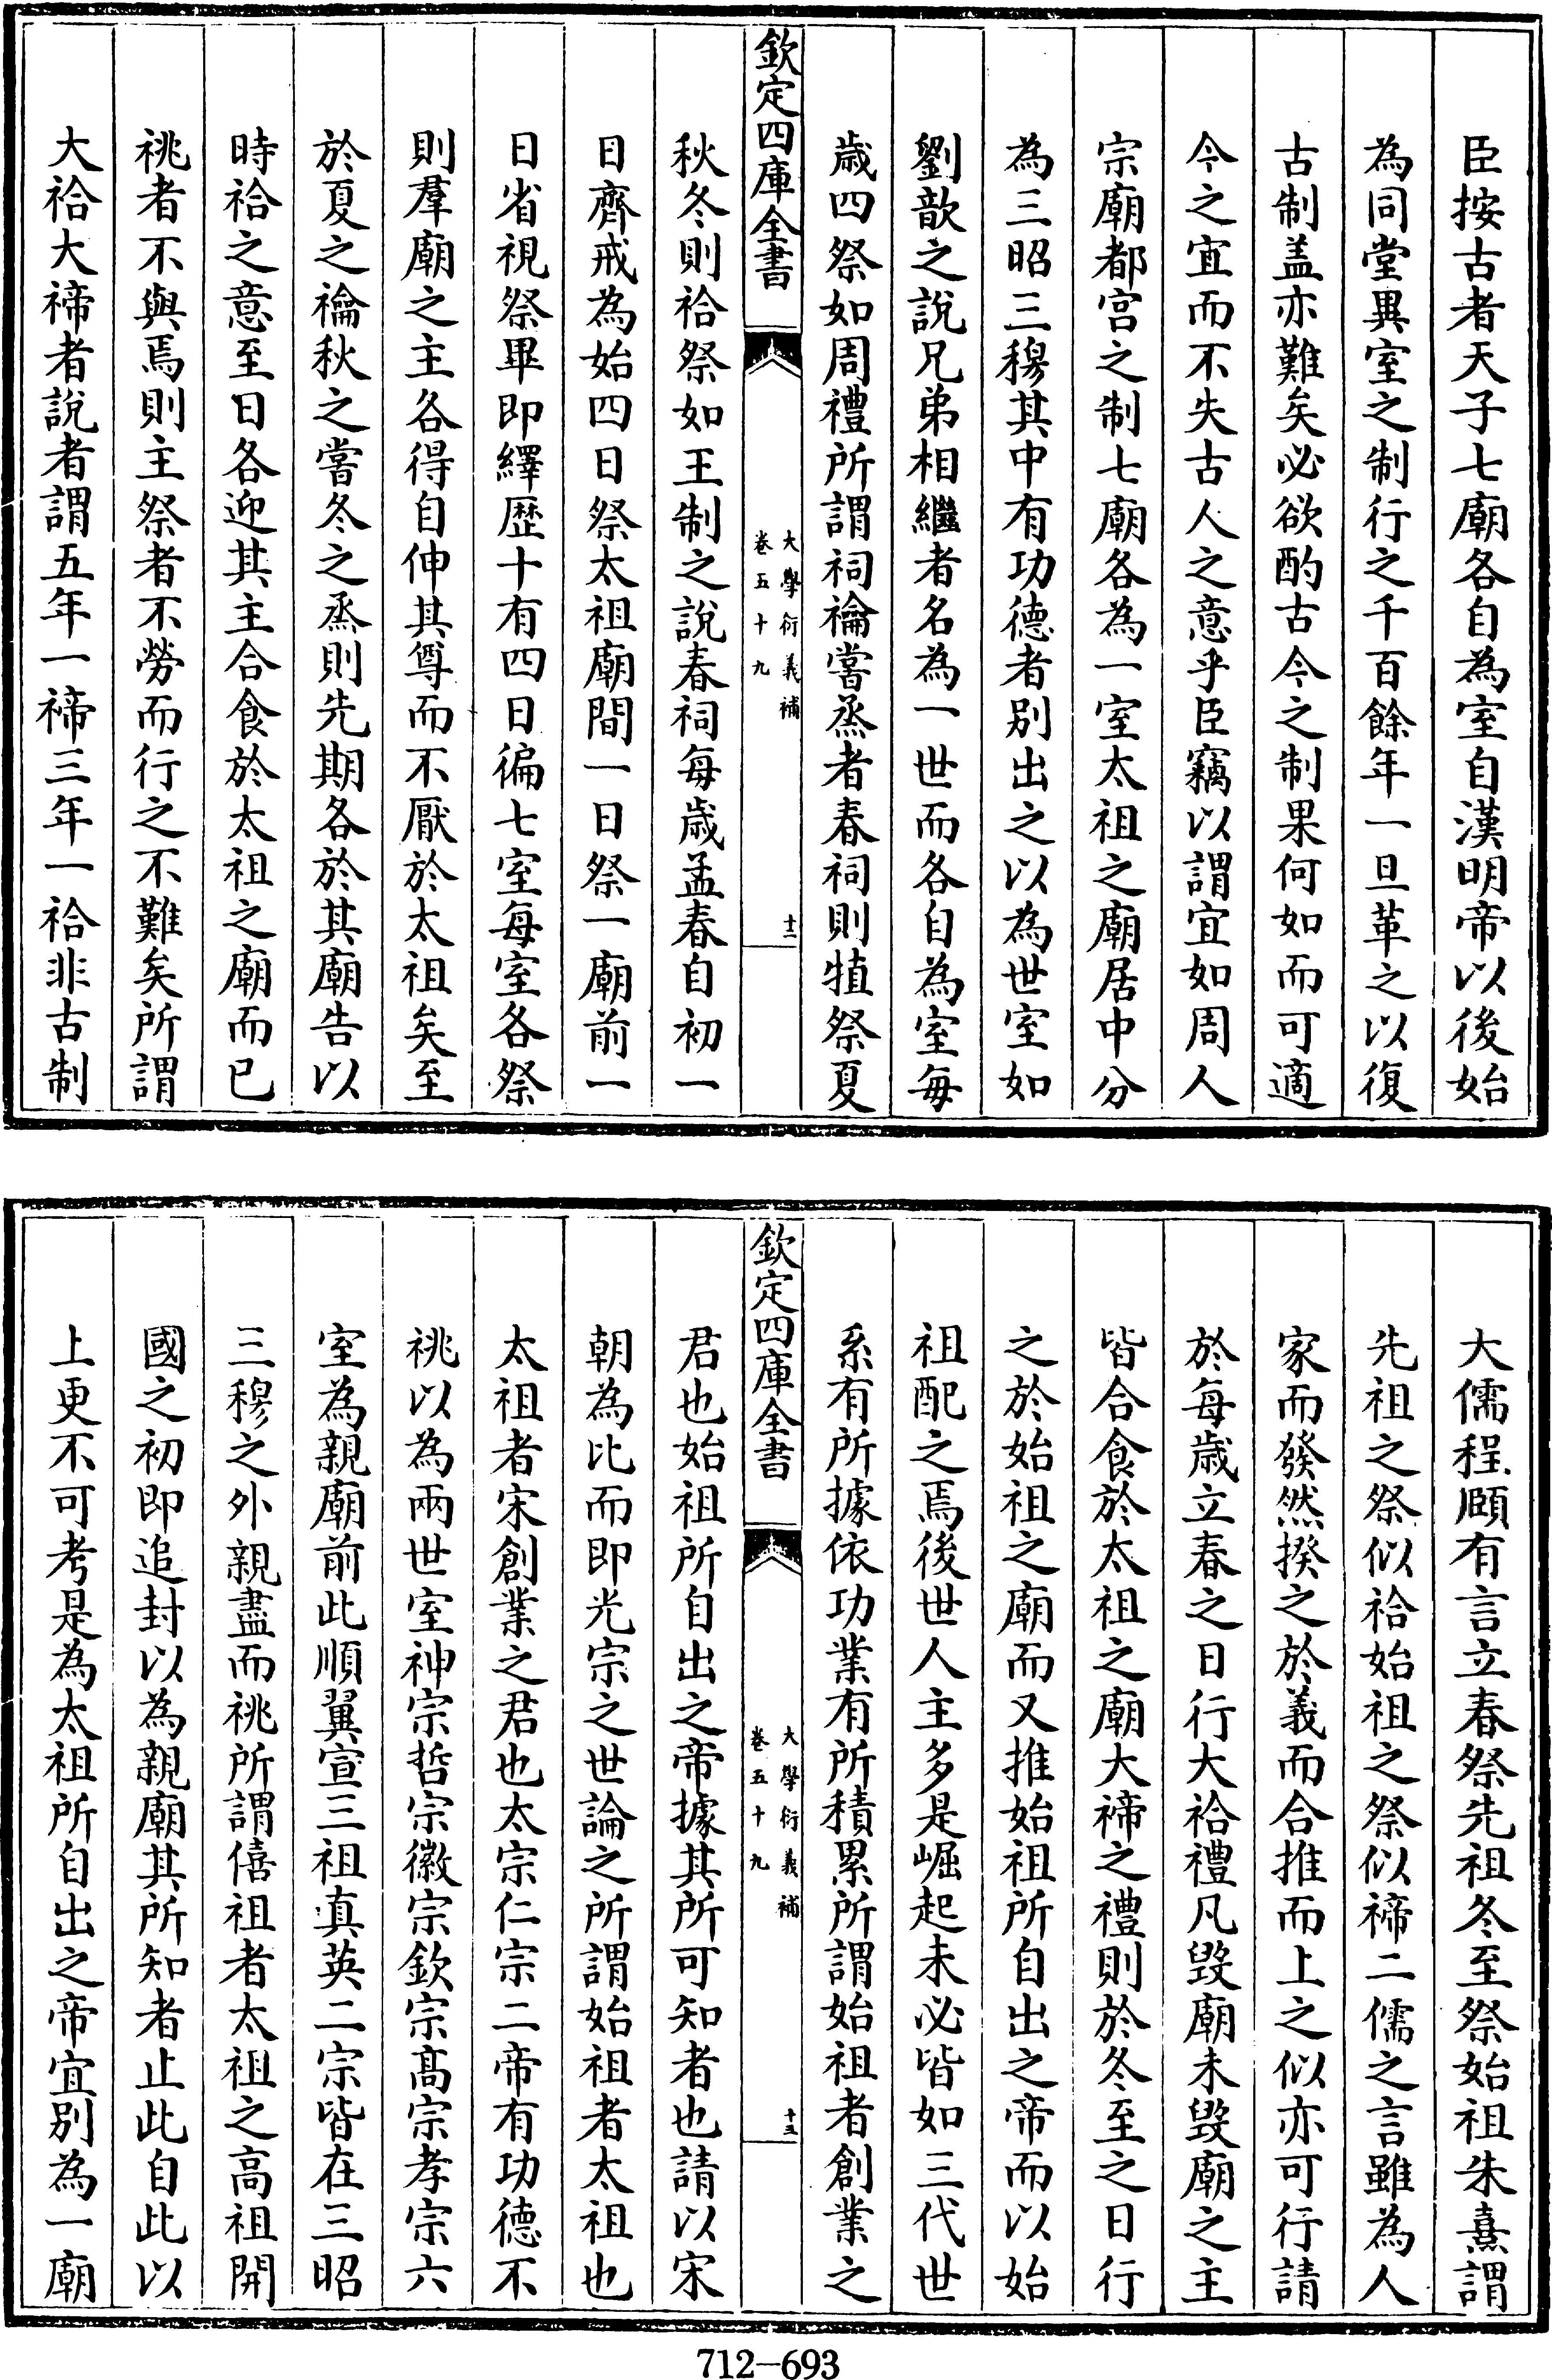 臣按古者天子七廟各自為室自漢明帝以後始
為同堂異室之制行之千百餘年一旦革之以復
古制盖亦難矣必欲酌古今之制果何如而可適
今之宜而不失古人之意乎臣竊以謂宜如周人
宗廟都宫之制七廟各為一室太祖之廟居中分
為三昭三穆其中有功德者别出之以為世室如
劉歆之說兄弟相繼者名為一世而各自為室每
歲四祭如周禮所謂祠禴嘗烝者春祠則犆祭夏
欽定四庫全書
大學衍義補
卷五十九
十二
秋冬則祫祭如王制之說春祠每歲孟春自初一
日齊戒為始四日祭太祖廟間一日祭一廟前一
日省視祭畢即繹歴十有四日徧七室每室各祭
則羣廟之主各得自伸其尊而不厭於太祖矣至
於夏之禴秋之嘗冬之烝則先期各於其廟告以
時祫之意至日各迎其主合食於太祖之廟而已
祧者不與焉則主祭者不勞而行之不難矣所謂
大祫大禘者說者謂五年一禘三年一祫非古制
大儒程頤有言立春祭先祖冬至祭始祖朱熹謂
先祖之祭似祫始祖之祭似禘二儒之言雖為人
家而發然揆之於義而合推而上之似亦可行請
於每歲立春之日行大祫禮凡毁廟未毁廟之主
皆合食於太祖之廟大禘之禮則於冬至之日行
之於始祖之廟而又推始祖所自出之帝而以始
祖配之焉後世人主多是崛起未必皆如三代世
系有所據依功業有所積累所謂始祖者創業之
欽定四庫全書
大學衍義補
卷五十九
十三
君也始祖所自出之帝據其所可知者也請以宋
朝為比而即光宗之世論之所謂始祖者太祖也
太祖者宋創業之君也太宗仁宗二帝有功德不
祧以為兩世室神宗哲宗徽宗欽宗高宗孝宗六
室為親廟前此順翼宣三祖真英二宗皆在三昭
三穆之外親盡而祧所謂僖祖者太祖之高祖開
國之初即追封以為親廟其所知者止此自此以
上更不可考是為太祖所自出之帝宜别為一廟
712-693